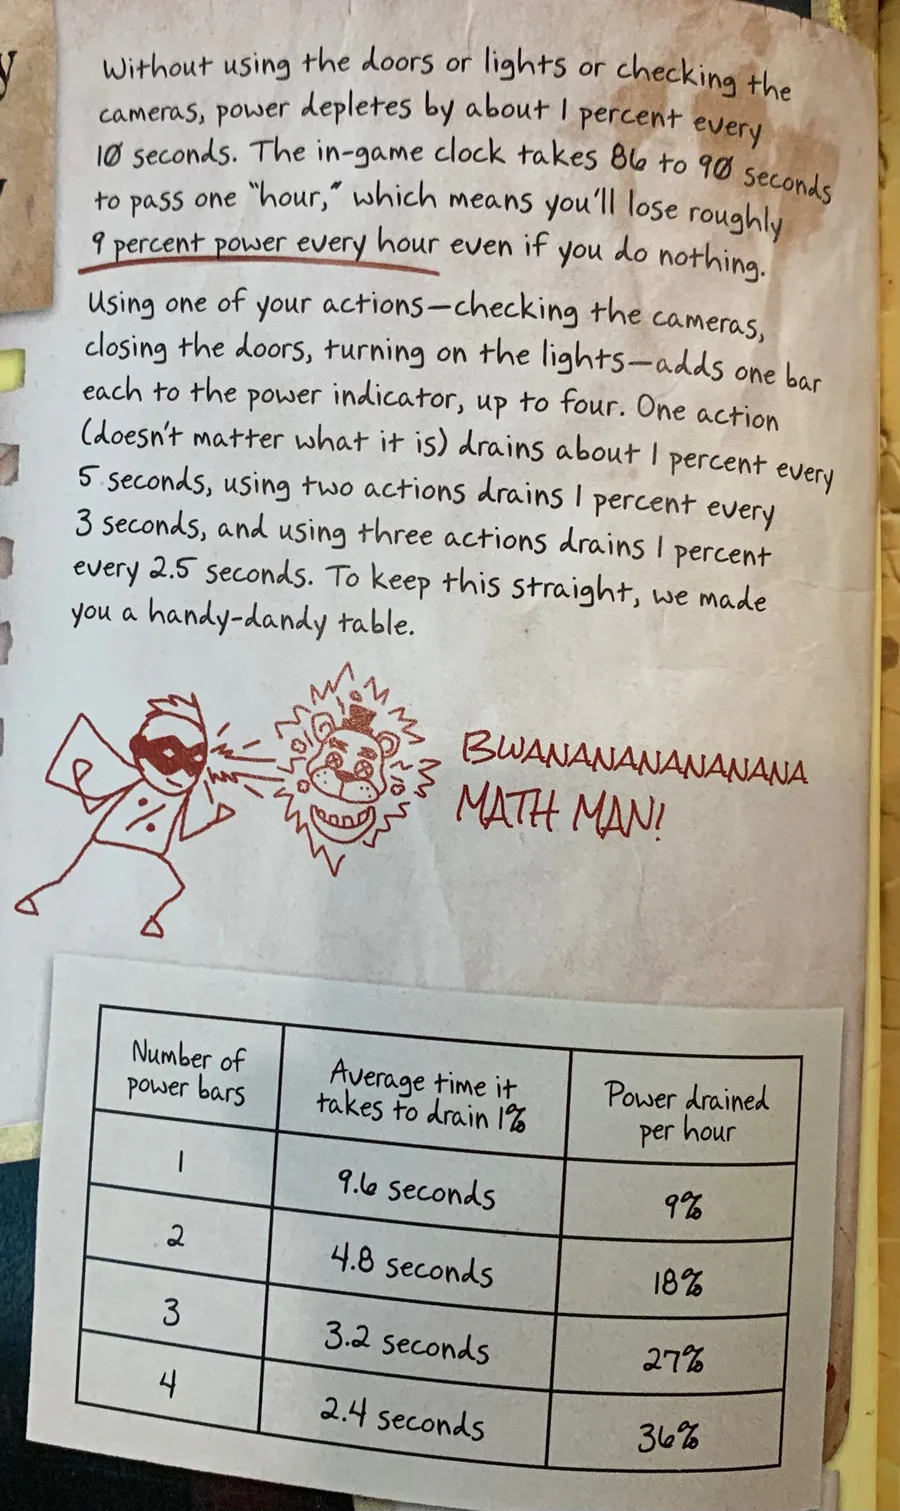 y
Without using the doors or lights or checking the
cameras, power depletes by about 1 percent every
10 seconds. The in-game clock takes 86 to 90 seconds
to pass one "hour," which means you'll lose roughly
9 percent power every hour even if you do nothing.
Using one of your actions—checking the cameras,
closing the doors, turning on the lights—adds one bar
each to the power indicator, up to four. One action
(doesn't matter what it is) drains about 1 percent every
5 seconds, using two actions drains 1 percent every
3 seconds, and using three actions drains 1 percent
every 2.5 seconds. To keep this straight, we made
you a handy-dandy table.
%
BWANANANANANANA
MATH MAN!
Number of
power bars
Average time it
takes to drain 1%
Power drained
per hour
1
9.6 seconds
9%
2
4.8 seconds
18%
3
3.2 seconds
27%
4
2.4 seconds
36%